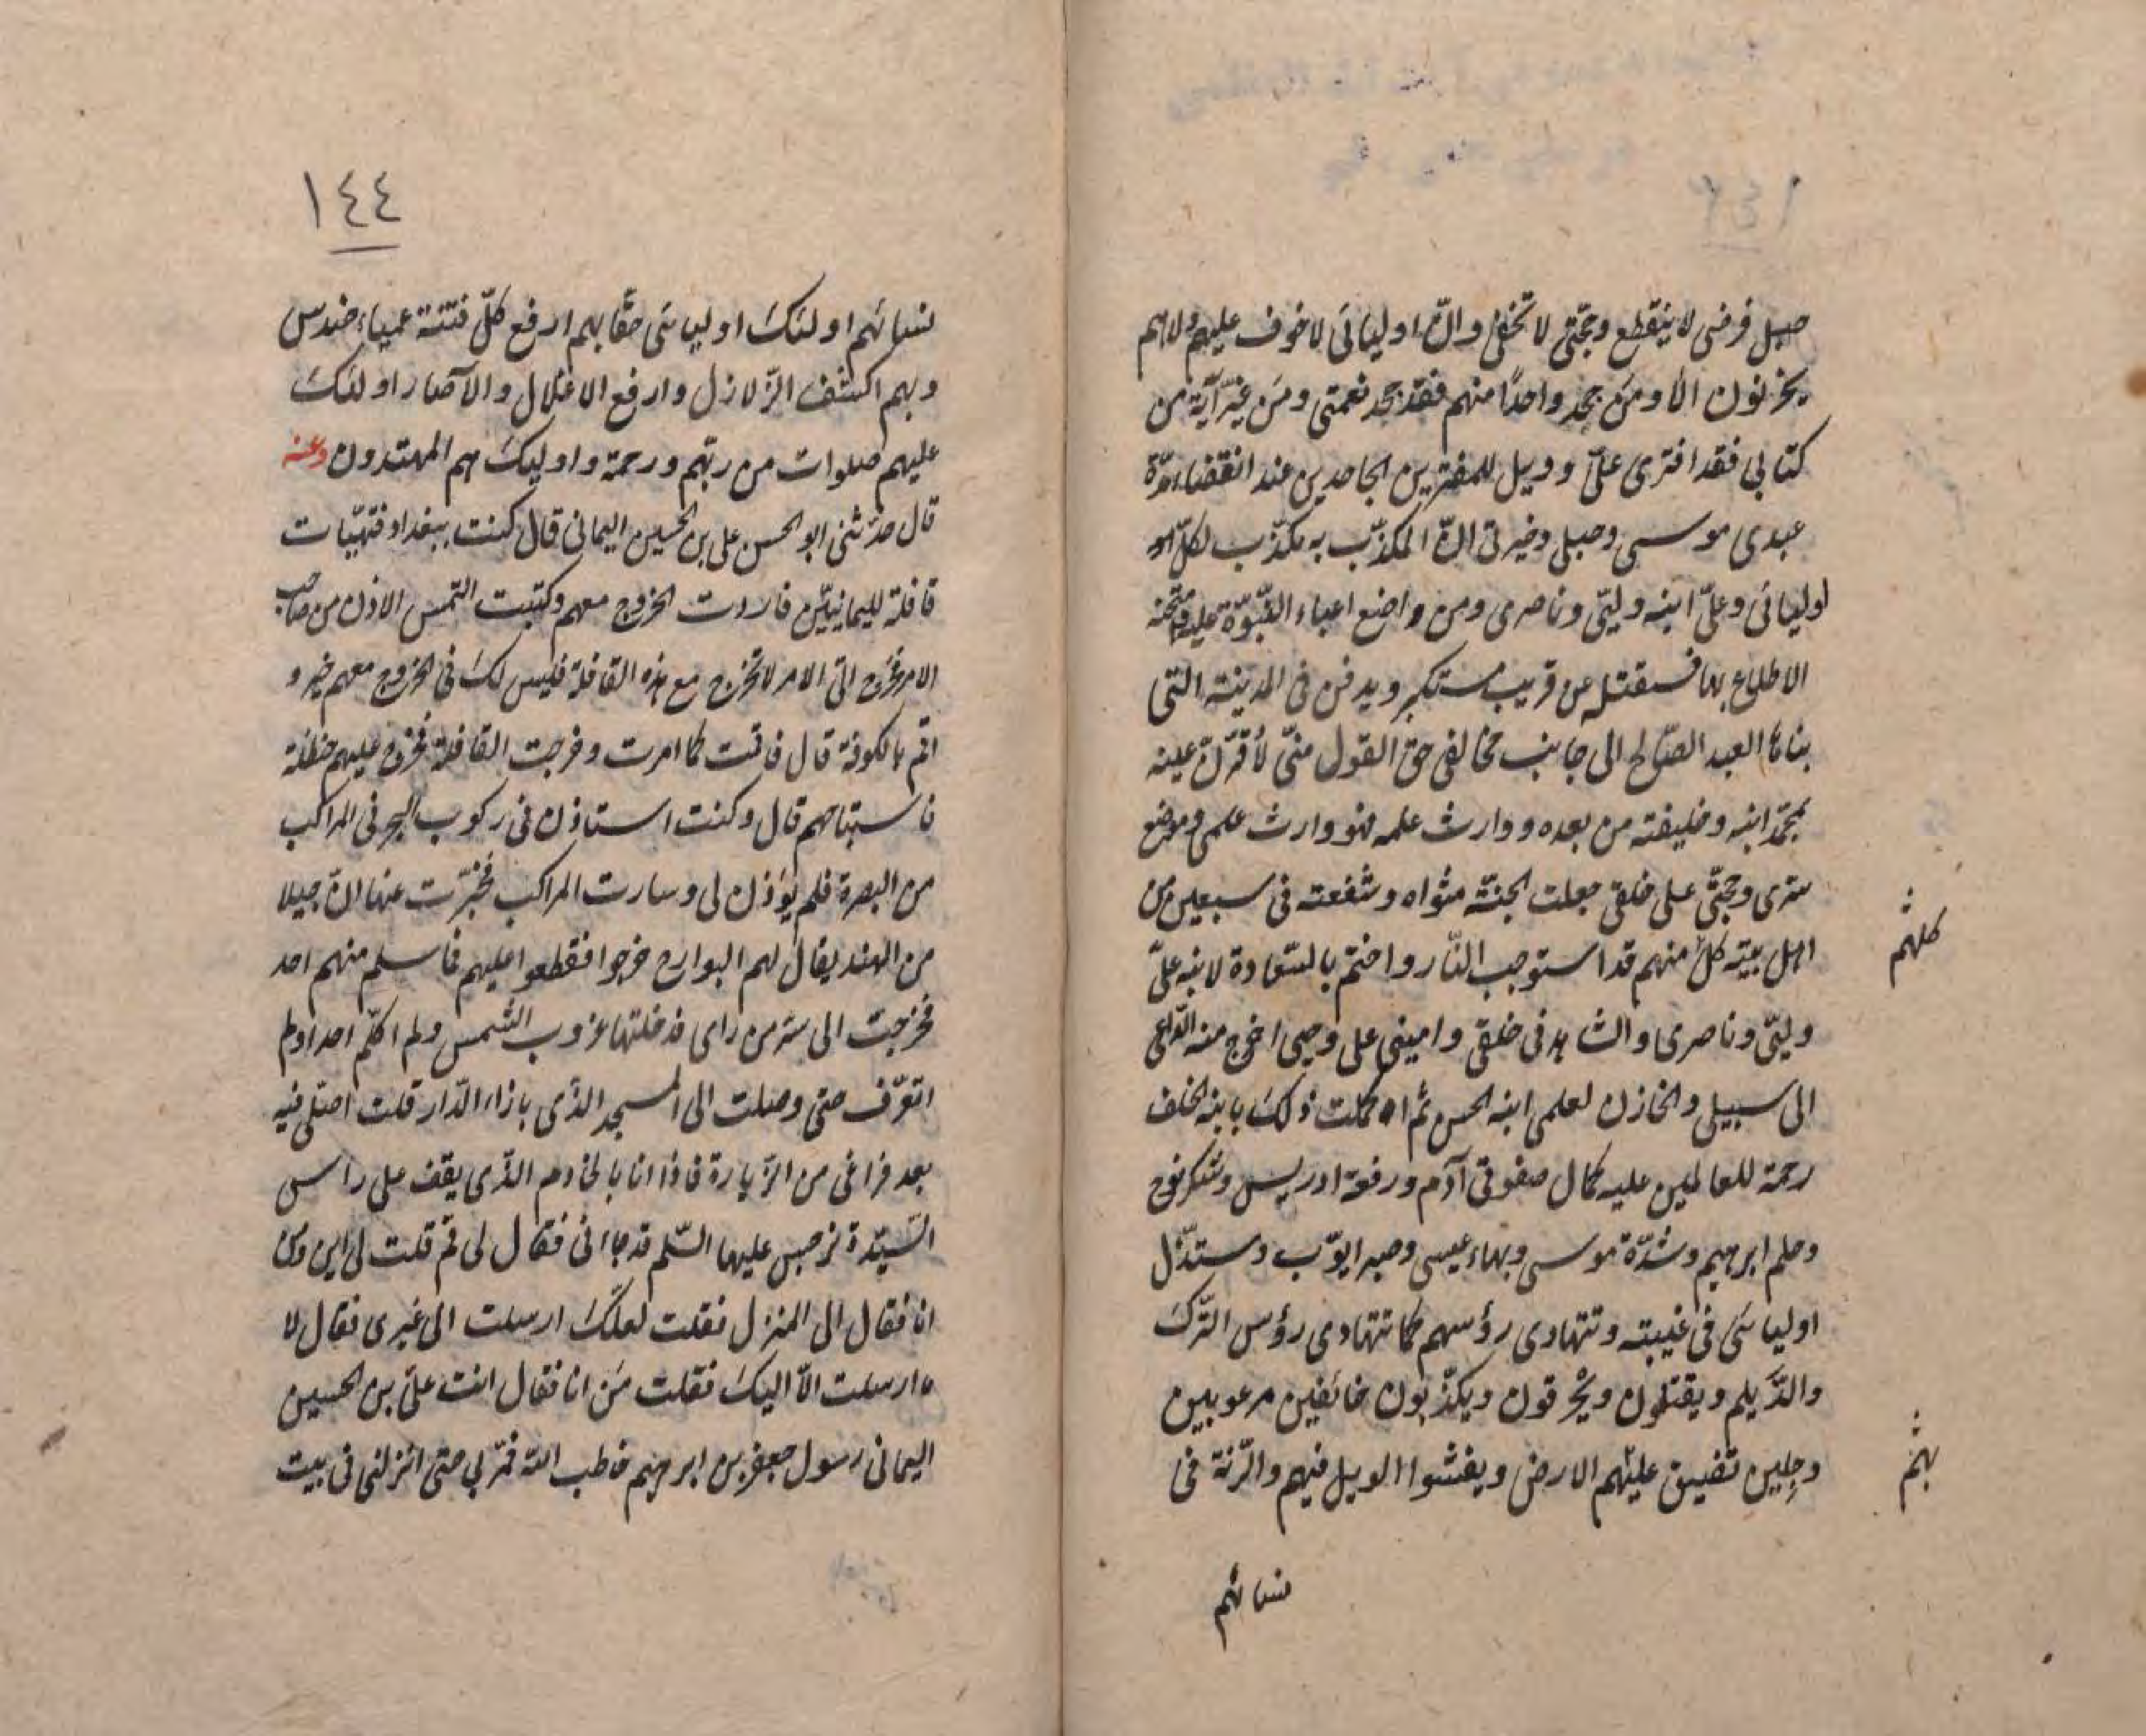 حبل فرضى لا ينقطع وحجتى لا تخفى وانّ اوليائى لا خوف عليهم ولا هم
يحزنون الا ومن جحد واحدًا منهم فقد جحد نعمتى ومن غيّر آية من
كتابى فقد افترى علىّ وويل للمفترين الجاحدين عند انقضاء مدّة
عبدى موسى وحبيبى وخيرتى انّ المكذّب به مكذّب لكلّ
اوليائى وعلىّ ابنه وليّى وناصرى ومن واضع اعباء النّبوّة عليه
الاطلاع بها فسيقتله عن قريب مستكبر ويدفن فى المدينة التى
بناها العبد الصّالح الى جانب مخالفى حق القول منّى لأقرّنّ عينه
بمحمّد ابنه وخليفته من بعده ووارث علمه فهو وارث علمى وموضع
سرّى وحجّتى على خلقى جعلت الجنّة مثواه وشفعته فى سبعين من
اهل بيته كلّ منهم قد استوجب النّار واختم بالسّعادة لابنه علىّ
كلهم
وليّى وناصرى والشاهد فى خلقى وامينى على وحيى اخرج منه الدّاعى
الى سبيلى والخازن لعلمى ابنه الحسن ثم اكملت ذلك بابنه الخلف
رحمة للعالمين عليه كمال صفوة آدم ورفعة ادريس وشكر نوح
وحلم ابرهيم وشدّة موسى وبهاء عيسى وصبر ايّوب وستذّل
اوليائى فى غيبته وتتهادى رؤسهم كما تتهادى رؤس التّرك
والدّيلم ويقتلون ويحرقون ويكذّبون خائفين مرعوبين
وجلين تضيق عليهم الارض ويفشوا الويل فيهم والرّنة فى
بهم
نسائهم
١٤٤
نسائهم اولئك اوليائى حقّا بهم ارفع كلّ فتنة عمياء حندس
وبهم اكشف الزّلازل وارفع الاغلال والآصار اولئك
عليهم صلوات من ربّهم ورحمة واوليك هم المهتدون وعنه
قال حدّثنى ابو الحسن على بن الحسين اليمانى قال كنت ببغداد فتهيّات
قافلة لليمانيّين فاردت الخروج معهم وكتبت التمس الاذن من صاحب
الامر فخرج الىّ الامر لا تخرج مع هذه القافلة فليس لك فى الخروج معهم خير و
اقم بالكوفة قال فاقمت كما امرت وخرجت القافلة فخرج عليهم حنظلة
فاستباحهم قال وكنت استاذن فى ركوب البحر فى المراكب
من البصرة فلم يؤذن لى وسارت المراكب فخبّرت عنها انّ جيلا
من الهند يقال لهم البوارح خرجوا فقطعوا عليهم فما سلم منهم احد
فخرجت الى سرّ من راى فدخلتها غروب الشّمس ولم اكلّم احدا ولم
اتعرّف حتى وصلت الى المسجد الذّى بازاء الدّار قلت اصلّى فيه
بعد فراغى من الزّيارة فاذا انا بالخادم الذّى يقف على راس
السّيّدة نرجس عليها السّلم قد جاءنى فقال لى قم قلت لى اين ومن
انا فقال الى المنزل فقلت لعلّك ارسلت الى غيرى فقال لا
ما ارسلت الاّ اليك فقلت من انا فقال انت علىّ بن الحسين
اليمانى رسول جعفر بن ابرهيم خاطب الله فمرّ بى حتى انزلنى فى بيت